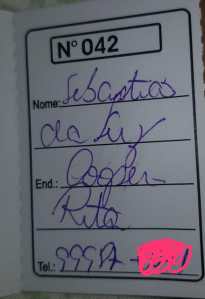 Nº 042
Nome: Sebastião
da Luz
End.: Cooper
Rita
Tel.: 999